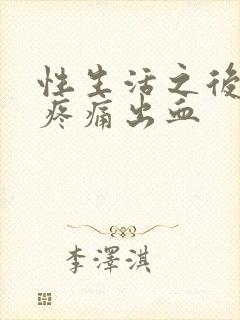 性生活之後
疼痛出血
李澤淇